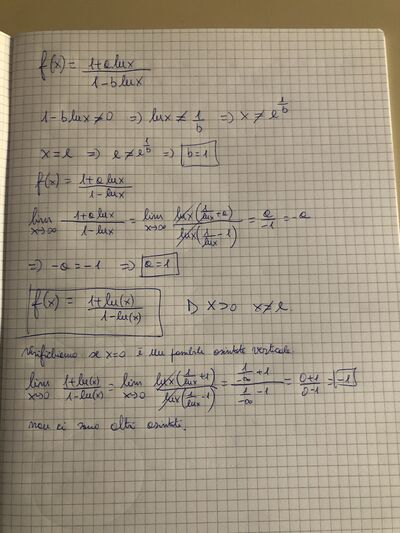 f(x) = (1+a lux)/(1-b lux)
1-b lux ≠ 0 => lux ≠ 1/b => x ≠ e^(1/b)
x = e => e ≠ e^(1/b) => b=1
f(x) = (1+a lux)/(1-lux)
lim x→∞ (1+a lux)/(1-lux) = lim x→∞ lux(1/lux + a)/lux(1/lux - 1) = a/-1 = -a
=> -a = -1 => a=1
f(x) = (1+lu(x))/(1-lu(x)) D x>0 x≠e.
Verifichiamo se x=0 è un possibile asintoto verticale.
lim x→0 (1+lu(x))/(1-lu(x)) = lim x→0 lux(1/lux +1)/lux(1/lux -1) = (1/-∞ +1)/(1/-∞ -1) = (0+1)/(0-1) = -1
non ci sono altri asintoti.